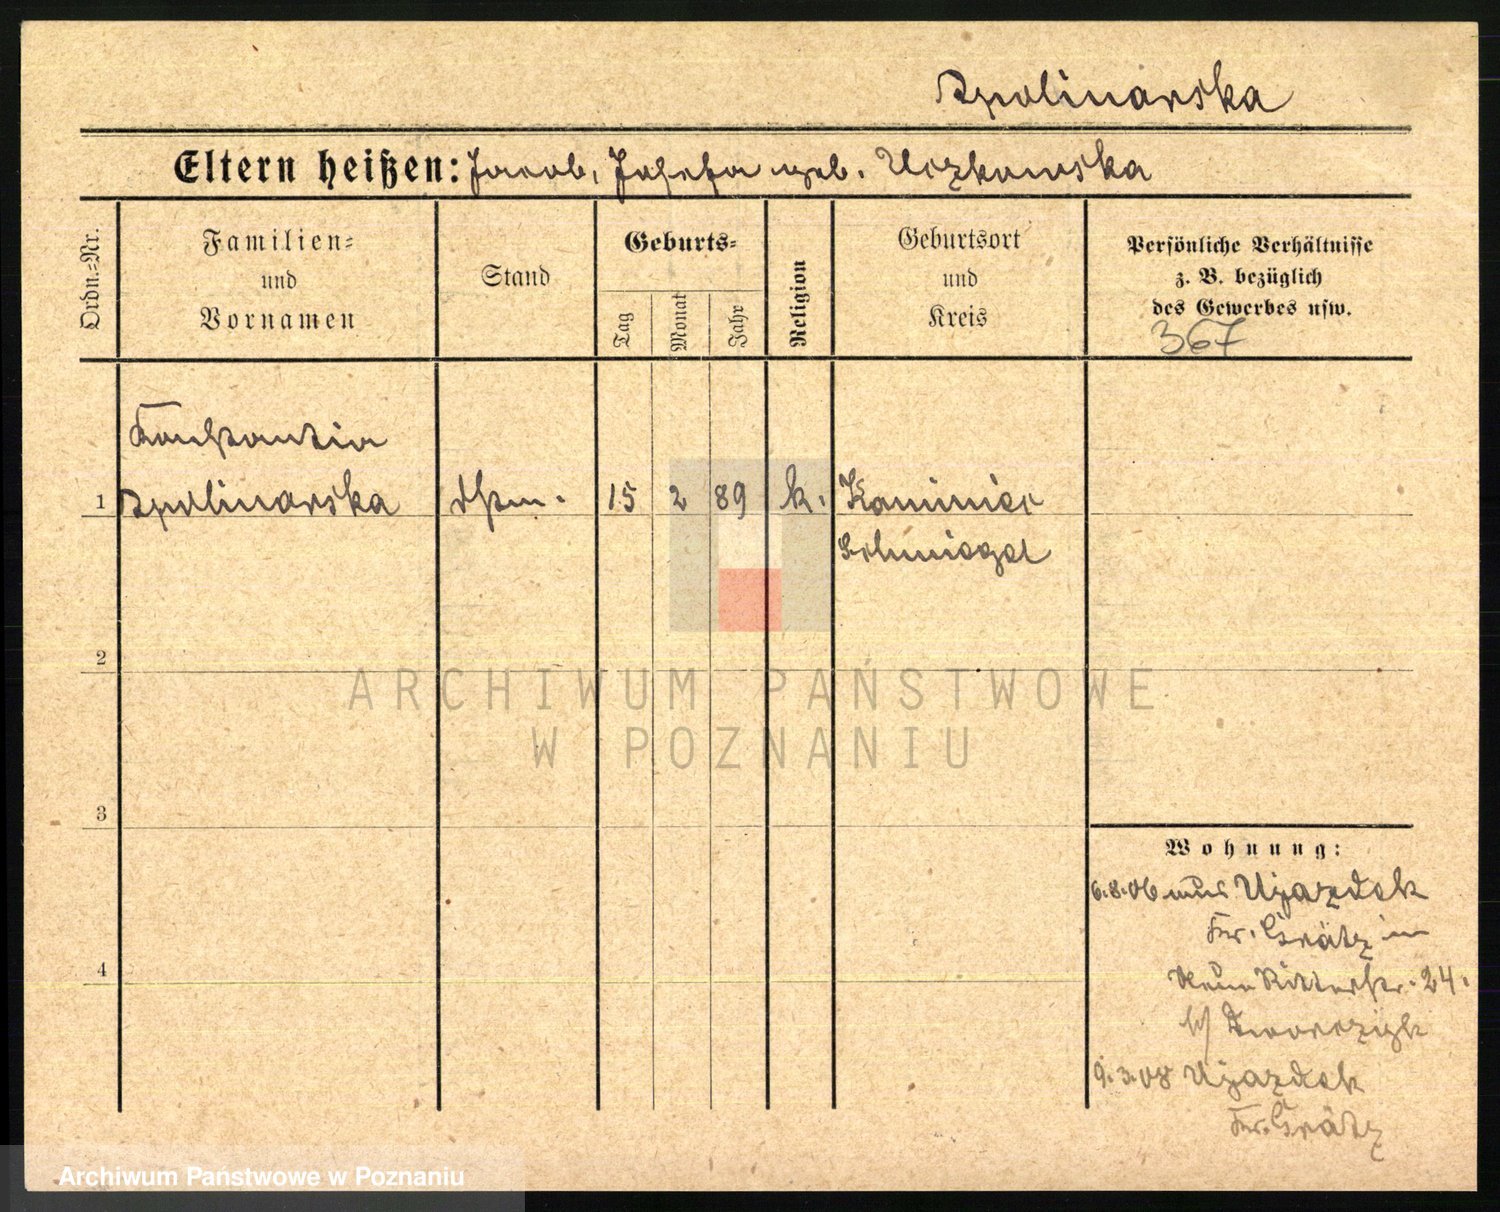 Apolinarska
Eltern heißen: Jacob, Josefa geb. Uczkowska
Ordn.=Nr.
Familien=
und
Vornamen
Stand
Geburts=
Tag
Monat
Jahr
Religion
Geburtsort
und
Kreis
Persönliche Verhältnisse
z. B. bezüglich
des Gewerbes usw.
367
Konstantia
1 Apolinarska 15 2 89 k. Kaminiec
Schmiegel
2
3
4
ARCHIWUM PAŃSTWOWE
W POZNANIU
Wohnung:
6.8.06 aus Ujazdek
Kr. Grätz in
Neue Ritterstr. 24.
b/ Dworczigk
9.3.08 Ujazdek
Kr. Grätz
Archiwum Państwowe w Poznaniu